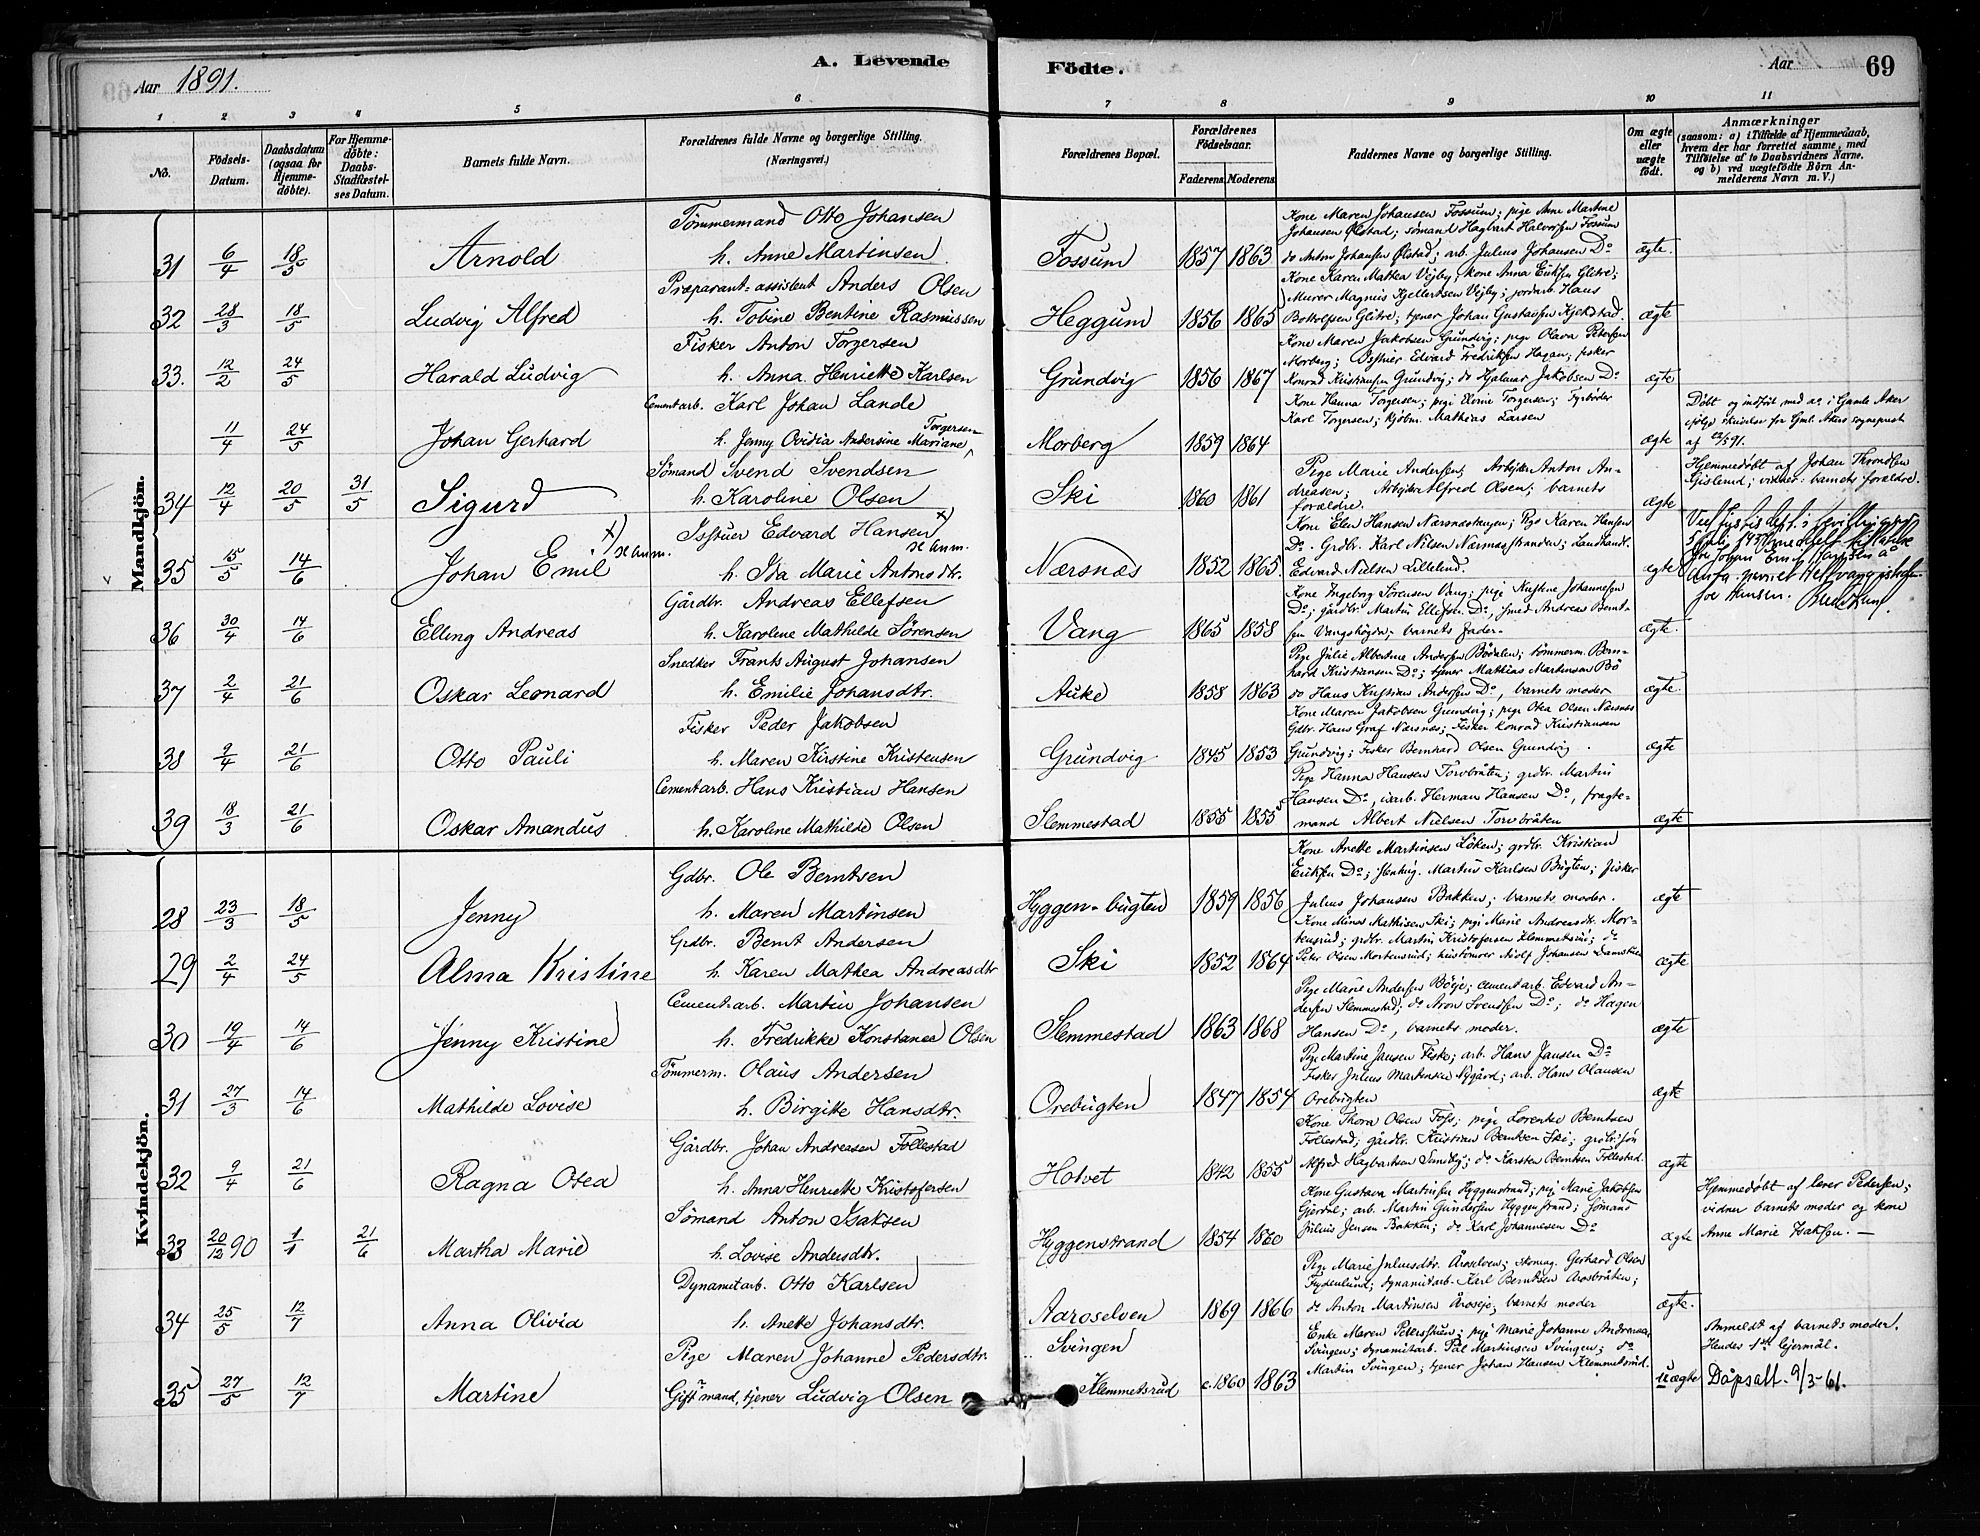 Aar 1891.
A. Levende
Födte.
Aar
69
1 2 3 4 5 6 7 8 9 10 11
No.
Födsels-Datum.
Daabsdatum (ogsaa for Hjemme-döbte).
For Hjemme-döbte: Daabs-Stadfæstel-ses Datum.
Barnets fulde Navn.
Forældrenes fulde Navne og borgerlige Stilling. (Næringsvei.)
Forældrenes Bopæl.
Forældrenes Födselsaar.
Faderens Moderens
Faddernes Navne og borgerlige Stilling.
Om ægte eller uægte födt.
Anmærkninger
(saasom: a) i Tilfælde af Hjemmedaab, hvem der har forrettet samme, med Tilföielse af to Daabsvidners Navne, og b) ved uægtefödte Börn An-melderens Navn m. V.)
Mandkjön.
Tömmermand Otto Johansen
Kone Maren Johansen Fossum; pige Anne Martine
Johansen Ølstad; sömand Hagbart Halvorsen Fossum
31 6/4 18/5 Arnold h. Anne Martinsen Fossum 1857 1863 do Anton Johansen Ølstad; arb. Julius Johansen Do ægte.
Præparant-assistent Anders Olsen
Kone Karen Mathea Vejby, kone Anna Eriksen Glitre;
Murer Magnus Kjellertsen Vejby; jordarb. Hans
32 28/3 18/5 Ludvig Alfred h. Tobine Bentine Rasmussen Heggum 1856 1865 Bottolfsen Glitre; tjener Johan Gustavsen Kjekstad. ægte
Fisker Anton Torgersen
Kone Maren Jakobsen Grundvig; pige Olava Petersen
Morberg; Isstuer Edvard Fredriksen Hagan; fisker
33. 12/2 24/5 Harald Ludvig h. Anna Henriette Karlsen Grundvig 1856 1867 Konrad Kristiansen Grundvig; do Hjalmar Jakobsen Do ægte
Cementarb. Karl Johan Lande
Kone Hanna Torgersen; pige Torgersen; Fyrböder
Karl Torgersen; kjöbm. Mathias Larsen
Döbt og indfört med No i Gamle Aker
ifölge skrivelse fra Gml. Akers sogneprest
af 22/5 91.
11/4 24/5 Johan Gerhard h. Jenny Ovidia Andersine Mariane Torgersen Morberg 1859 1864 ægte
Sömand Svend Svendsen
Pige Marie Andersen; Arbejder Anton An-
dreasen; Arbejder Alfred Olsen; barnets
forældre.
Hjemmedöbt af Johan Throndsen
Gislerud; vidner: barnets forældre.
34 12/4 20/5 31/5 Sigurd h. Karoline Olsen Ski 1860 1861 ægte
Isstuer Edvard Hansen x)
se Anm.
Kone Elen Hansen Nærsnestangen; Pige Karen Hansen
Do. Grdbr. Karl Nilsen Nærsnesstranden; Landhandl.
35 15/5 14/6 Johan Emil x) se Anm. h. Ida Marie Antonsdtr. Nærsnæs 1852 1865. Edvard Nielsen Lillelind. ægte
for Johan Emil Hansen å
Hansen.
Gårdbr. Andreas Ellefsen
Kone Ingeborg Sörensen Vang; pige Kristine Johannesen
Do; gårdbr. Martin Ellefsen Do, smed Andreas Bernt-
36 30/4 14/6 Elling Andreas h. Karoline Mathilde Sörensen Vang 1865 1858 sen Vangshögda. barnets fader. ægte.
Snedker Frants August Johansen
Pige Julie Albertine Andersen Bödalen; tömmerm. Bern-
hard Kristiansen Do; tjener Mathias Martinsen Bö
37 2/4 21/6 Oskar Leonard h. Emilie Johansdtr. Auke 1858 1863 do Hans Kristian Andersen Do, barnets moder ægte.
Fisker Peder Jakobsen
Kone Maren Jakobsen Grundvig; pige Otea Olsen Nærsnes
Gdbr. Hans Graf Nærsnes; Fisker Konrad Kristiansen
38 9/4 21/6 Otto Pauli h. Maren Kirstine Kristensen Grundvig 1845 1853 Grundvig; Fisker Bernhard Olsen Grundvig. ægte
Cementarb. Hans Kristian Hansen
Pige Hanna Hansen Torvbråten; grdbr. Martin
Hansen Do, isarb. Herman Hansen Do, fragte-
39 18/3 21/6 Oskar Amandus h. Karoline Mathilde Olsen Slemmestad 1855 1855 mand Albert Nielsen Torvbråten ægte
Kvindekjön.
Gdbr. Ole Berntsen
Kone Anette Martinsen Löken; grdbr. Kristian
Eriksen Do; stenhug. Martin Karlsen Bugten; fisker
28 23/3 18/5 Jenny h. Maren Martinsen Hyggen-bugten 1859 1856 Julius Johansen Bakken; barnets moder. ægte
Grdbr. Bernt Andersen
Kone Mina Mathisen Ski; pige Marie Andreasdt. Mor-
tensrud; grdbr. Martin Kristofersen Klemmetsrud; do
29 2/4 24/5 Alma Kristine h. Karen Mathea Andreasdtr Ski 1852 1864 Peter Olsen Mortensrud; Adolf Johansen ægte
Cementarb. Martin Johansen
Pige Marie Andersen Böeje; cementarb. Edvard An-
dersen Slemmestad; do Aron Svendsen Do; do Hagen
30 19/4 14/6 Jenny Kristine h. Fredrikke Konstance Olsen Slemmestad 1863 1868 Hansen Do, barnets moder. ægte
Tömmerm. Olaus Andersen
Pige Martine Jansen Fiske; arb. Hans Jansen Do
Fisker Julius Martinsen Nygård; arb. Hans Olausen
31 27/3 14/6 Mathilde Lovise h. Birgitte Hansdtr. Orebugten 1847 1854 Orebugten ægte
Gårdbr. Johan Andreasen Follestad
Kone Thora Olsen Foss; pige Lorentse Berntsen
Follestad; gårdbr. Kristian Berntsen Ski; grdbr. sön
32 9/4 21/6 Ragna Otea h. Anna Henriette Kristofersen Hotvet 1842 1855 Alfred Hagbartsen Sundby; do Karsten Berntsen Follestad. ægte
Sömand Anton Isaksen
Kone Gustava Martinsen Hyggenstrand; pige Marie Jakobsen
Gjerdal; arb. Martin Gundersen Hyggenstrand; Sömand
Hjemmedöbt af lærer Pedersen;
vidner barnets moder og kone
33 20/12 90 1/1 21/6 Martha Marie h. Lovise Andersdtr. Hyggenstrand 1854 1860 Julius Jensen Bakken; do Karl Johannesen Do ægte Anne Marie Isaksen. —
Dynamitarb. Otto Karlsen
Pige Marie Juliusdtr. Åroselven; skomag. Gerhard Olsen
Frydenlund; dynamitarb. Karl Berntsen Årosbråten;
34 25/5 12/7 Anna Olivia h. Anette Johansdtr. Aaroselven 1869 1866 do Anton Martinsen Årosejo; barnets moder ægte.
Pige Maren Johanne Pedersdtr. Svingen
Enke Maren Peterstuen; pige Marie Johanne Andreasen
Svingen; dynamitarb. Pål Martinsen Svingen; do
Anmeldt af barnets moder.
Hendes 1ste lejermål.
35 27/5 12/7 Martine Gift mand, tjener Ludvig Olsen Klemmetsrud c. 1860 1863 Martin Svingen; tjener Johan Hansen Klemmetsrud. uægte Dåpsatt. 9/3-61.